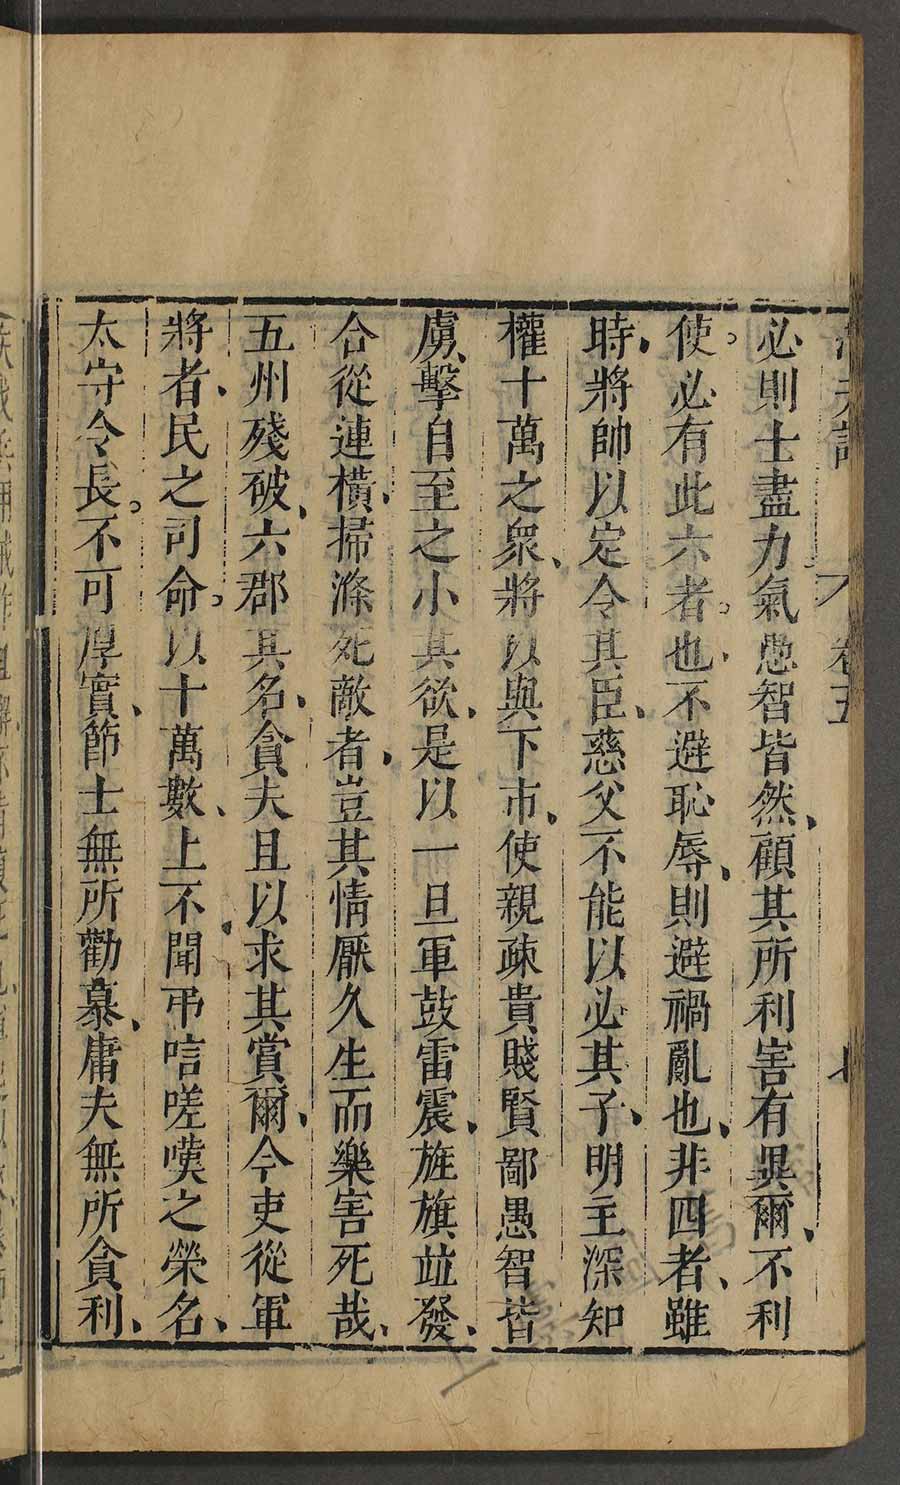 卷五
必則士盡力氣愚智皆然、顧其所利害有異爾、不利
使。必有此六者。也、不避恥辱、則避禍亂也、非四者、雖
時、將帥以定令其臣、慈父不能以必其子、明主深知
權十萬之衆、將以與下市、使親疎貴賤賢鄙愚智皆
虜、擊自至之小其欲、是以一旦軍鼓雷震、旌旗竝發、
合從連橫、掃滌死敵者、豈其情厭久生而樂害死哉、
五州殘破、六郡其名、貪夫且以求其賞爾、今吏從軍
將者、民之司命。以十萬數、上不聞弔唁嗟嘆之榮名、
太守令長。不可厚實、節士無所勸慕、庸夫無所貪利、